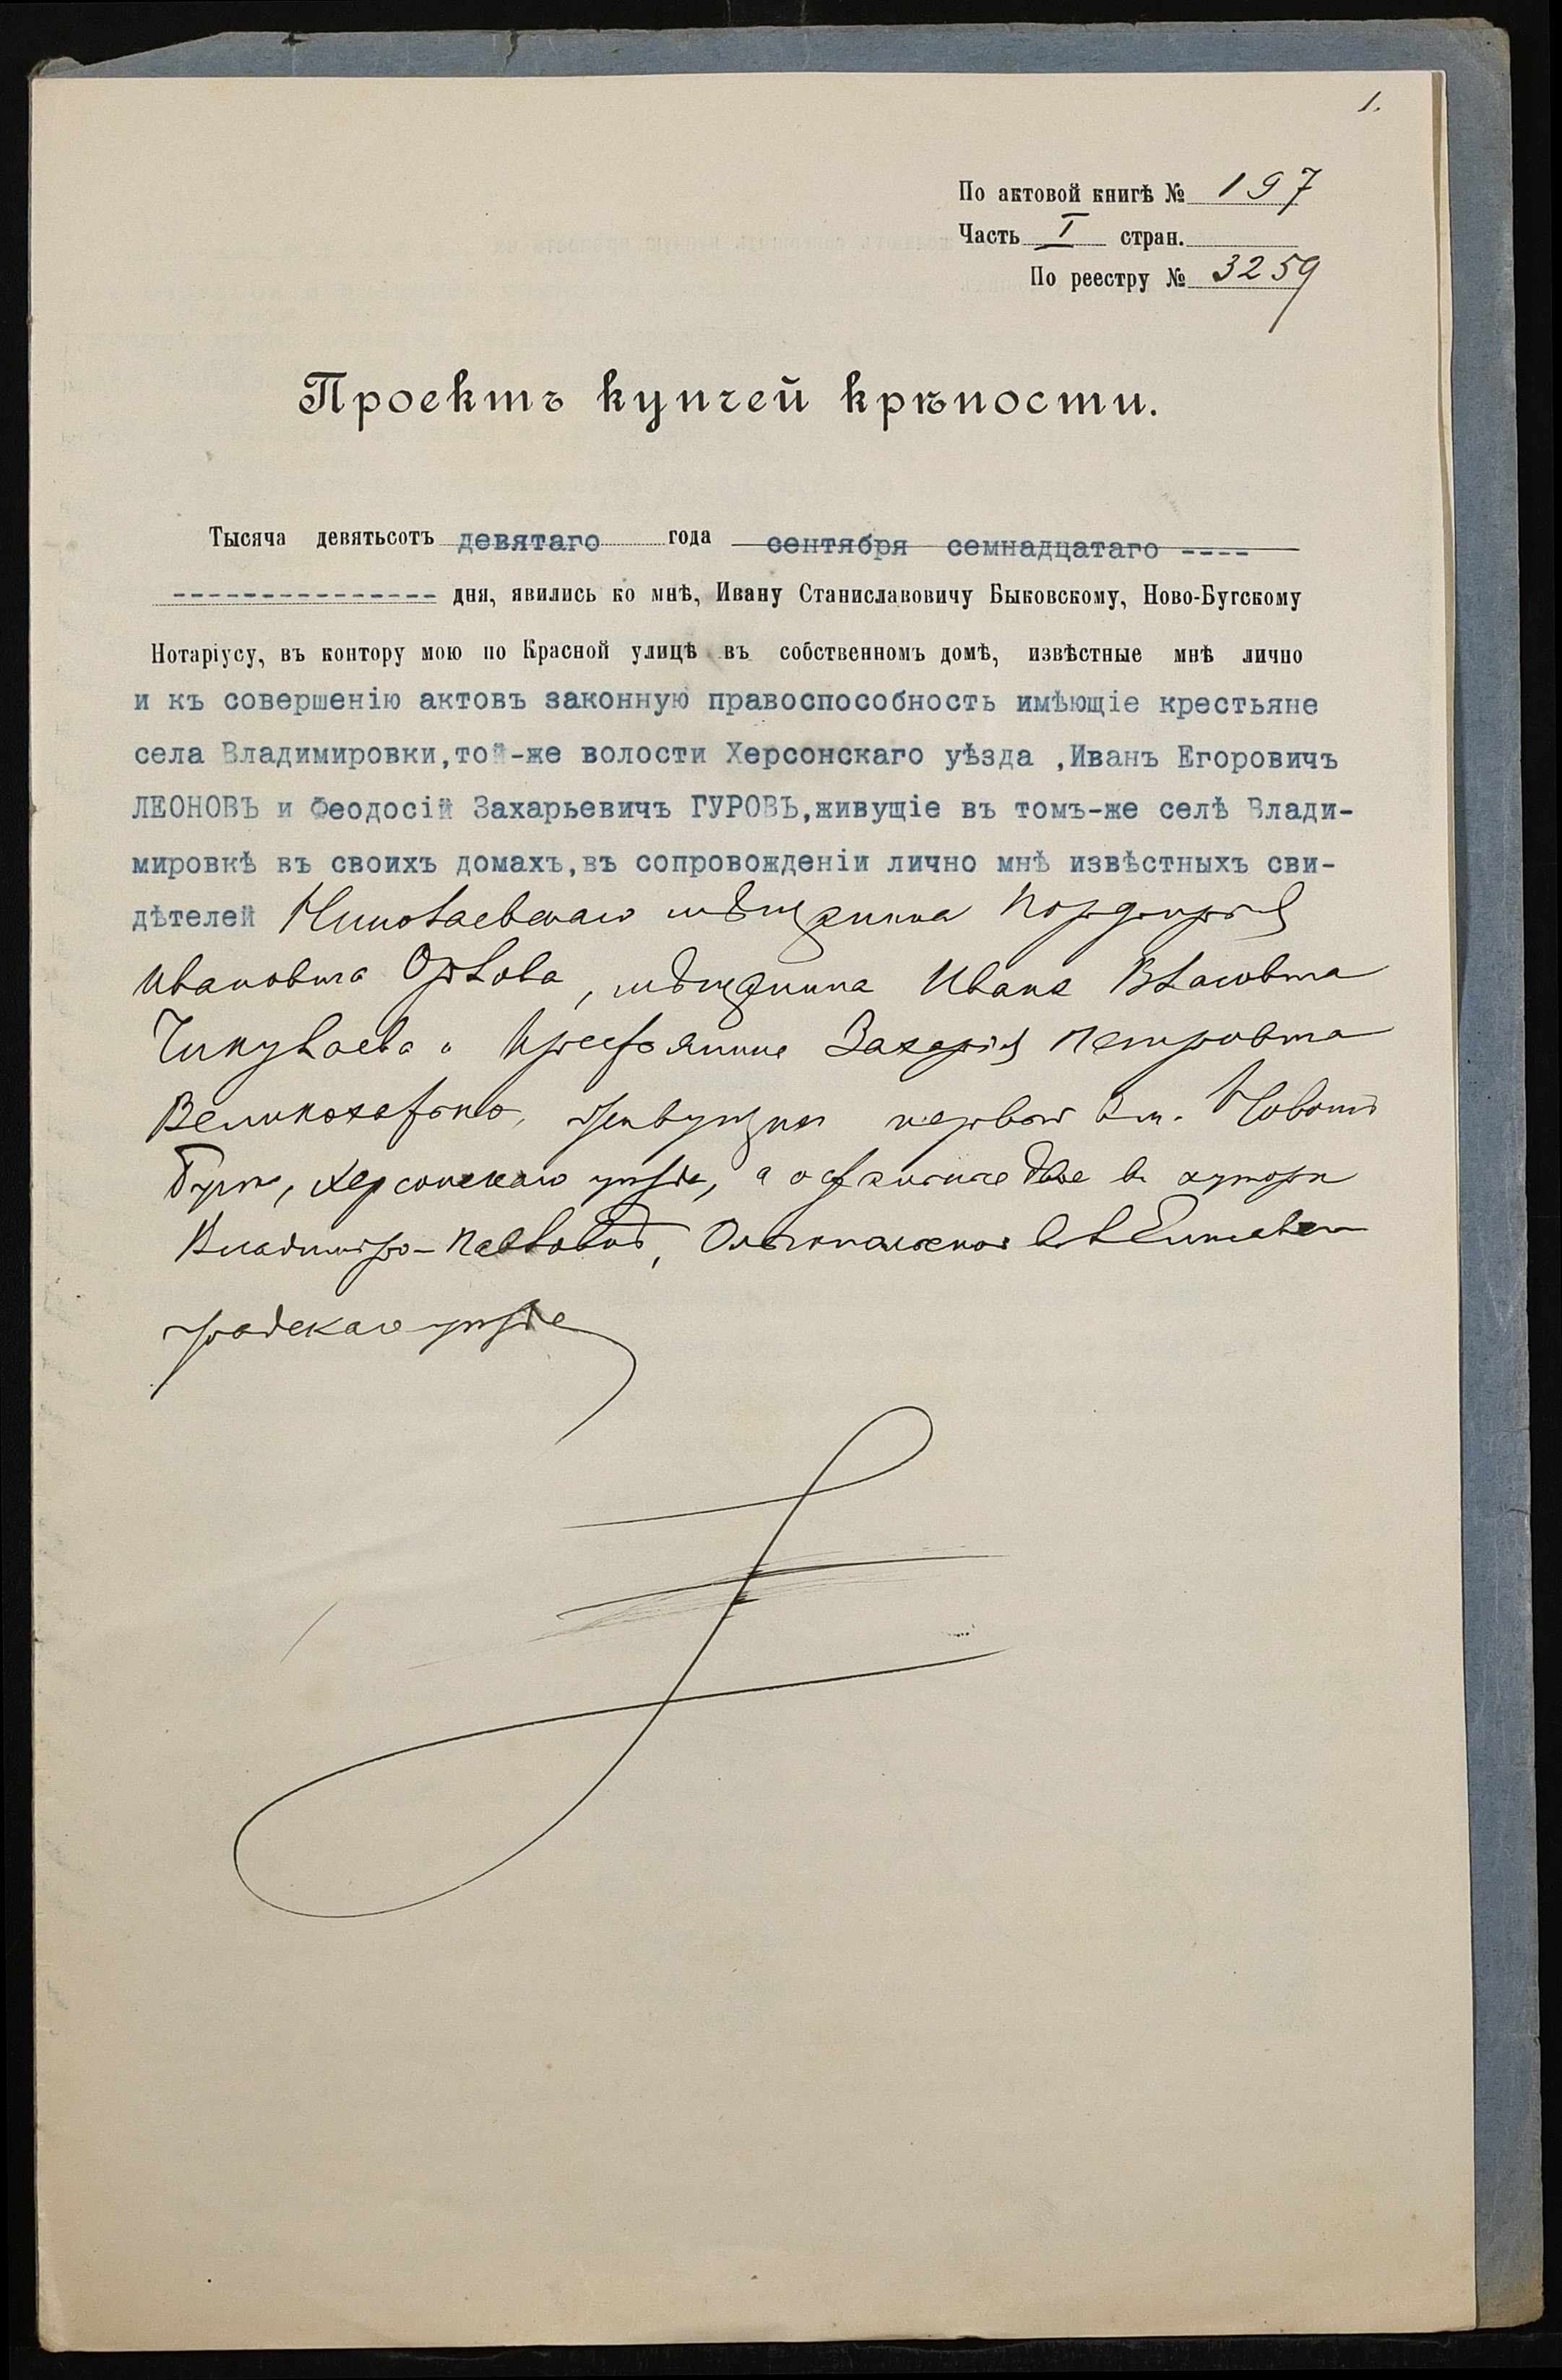 1.
По актовой книгѣ № 197
Часть I стран.
По реестру № 3259
Проектъ купчей крѣпости.
Тысяча девятьсотъ девятаго года сентября семнадцатаго ----
---------------- дня, явились ко мнѣ, Ивану Станиславовичу Быковскому, Ново-Бугскому
Нотаріусу, въ контору мою по Красной улицѣ въ собственномъ домѣ, извѣстные мнѣ лично
и къ совершенію актовъ законную правоспособность имѣющіе крестьяне
села Владимировки,той-же волости Херсонскаго уѣзда ,Иванъ Егоровичъ
ЛЕОНОВЪ и Феодосій Захарьевичъ ГУРОВЪ,живущіе въ томъ-же селѣ Влади-
мировкѣ въ своихъ домахъ,въ сопровожденіи лично мнѣ извѣстныхъ сви-
дѣтелей Николаевскаго мѣщанина Порфирія
Ивановича Орлова, мѣщанина Ивана Власовича
Чикулаева и крестьянина Захарія Петровича
живущихъ первый въ м. Новомъ
Бугѣ, Херсонскаго уѣзда, а остальные двое въ хуторѣ
Владимиро-Павловкѣ, вол. Елисавет-
градскаго уѣзда